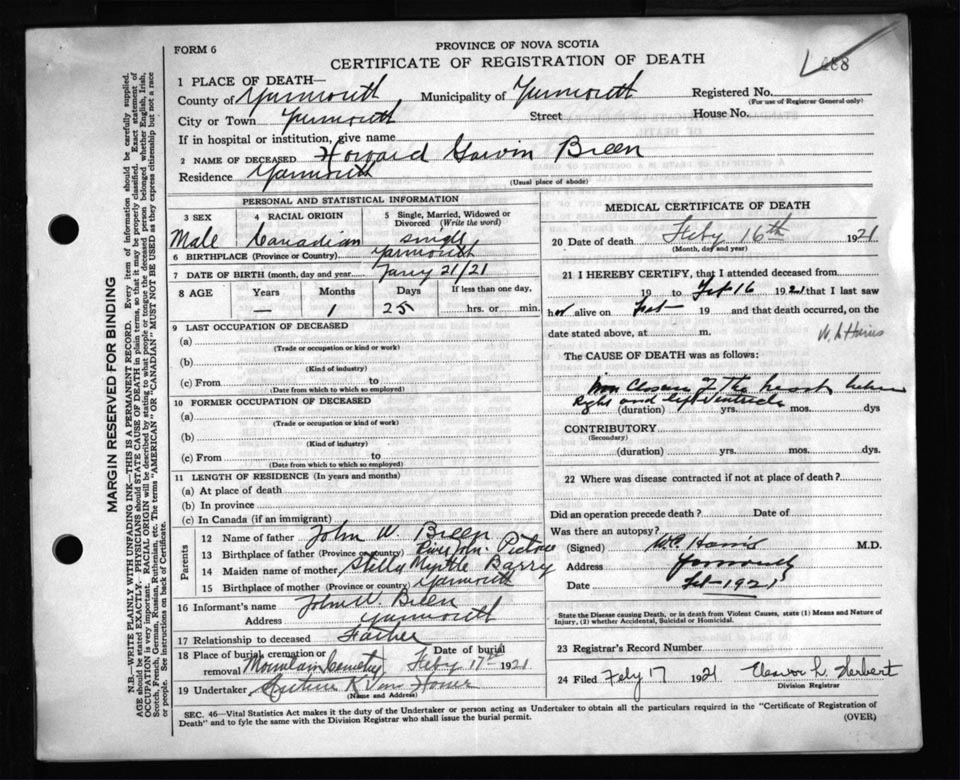 FORM 6
PROVINCE OF NOVA SCOTIA
CERTIFICATE OF REGISTRATION OF DEATH
1 PLACE OF DEATH—
County of Yarmouth Municipality of Yarmouth Registered No.
(For use of Registrar General only)
City or Town Yarmouth Street House No.
If in hospital or institution, give name
2 NAME OF DECEASED Howard Breen
Residence Yarmouth
(Usual place of abode)
PERSONAL AND STATISTICAL INFORMATION
3 SEX 4 RACIAL ORIGIN 5 Single, Married, Widowed or Divorced (Write the word)
Male Canadian single
6 BIRTHPLACE (Province or Country) Yarmouth
7 DATE OF BIRTH (month, day and year) Jany 21/21
8 AGE Years Months Days If less than one day,
— 1 25 hrs. or min.
9 LAST OCCUPATION OF DECEASED
(a)
(Trade or occupation or kind or work)
(b)
(Kind of industry)
(c) From to
(Date from which to which so employed)
10 FORMER OCCUPATION OF DECEASED
(a)
(Trade or occupation or kind of work)
(b)
(Kind of industry)
(c) From to
(Date from which to which so employed)
11 LENGTH OF RESIDENCE (In years and months)
(a) At place of death
(b) In province
(c) In Canada (if an immigrant)
Parents
12 Name of father John W. Breen
13 Birthplace of father (Province or country) River John Pictou
14 Maiden name of mother Stella Myrtle Barry
15 Birthplace of mother (Province or country) Yarmouth
16 Informant's name John W. Breen
Address Yarmouth
17 Relationship to deceased Father
18 Place of burial, cremation or removal Mountain Cemetry Date of burial Feby 17th 1921
19 Undertaker, K Van Horne
(Name and Address)
MEDICAL CERTIFICATE OF DEATH
20 Date of death Feby 16th 1921
(Month, day and year)
21 I HEREBY CERTIFY, that I attended deceased from
19 to Feb 16 1921 that I last saw
h alive on Feb 19 and that death occurred, on the
date stated above, at m.
The CAUSE OF DEATH was as follows:
Non Closure of The heart between
Right and left Ventricle
(duration) yrs. mos. dys
CONTRIBUTORY
(Secondary)
(duration) yrs. mos. dys.
22 Where was disease contracted if not at place of death?
Did an operation precede death? Date of
Was there an autopsy?
(Signed) Harris M.D.
Address Yarmouth
Date Feb 1921
State the Disease causing Death, or in death from Violent Causes, state (1) Means and Nature of
Injury, (2) whether Accidental, Suicidal or Homicidal.
23 Registrar's Record Number
24 Filed Feby 17 1921 Herbert
Division Registrar
SEC. 46—Vital Statistics Act makes it the duty of the Undertaker or person acting as Undertaker to obtain all the particulars required in the "Certificate of Registration of
Death" and to fyle the same with the Division Registrar who shall issue the burial permit.
(OVER)
MARGIN RESERVED FOR BINDING
N.B.—WRITE PLAINLY WITH UNFADING INK—THIS IS A PERMANENT RECORD. Every item of information should be carefully supplied.
AGE should be stated EXACTLY. PHYSICIANS should STATE CAUSE OF DEATH in plain terms, so that it may be properly classified. Exact statement of
OCCUPATION is very important. RACIAL ORIGIN will be described by stating to what people or tongue the deceased person belonged whether English, Irish,
Scotch, French, German, Russian, Ruthenian, etc. The terms "AMERICAN" or "CANADIAN" MUST NOT BE USED as they express citizenship but not a race
or people. See instructions on back of Certificate.